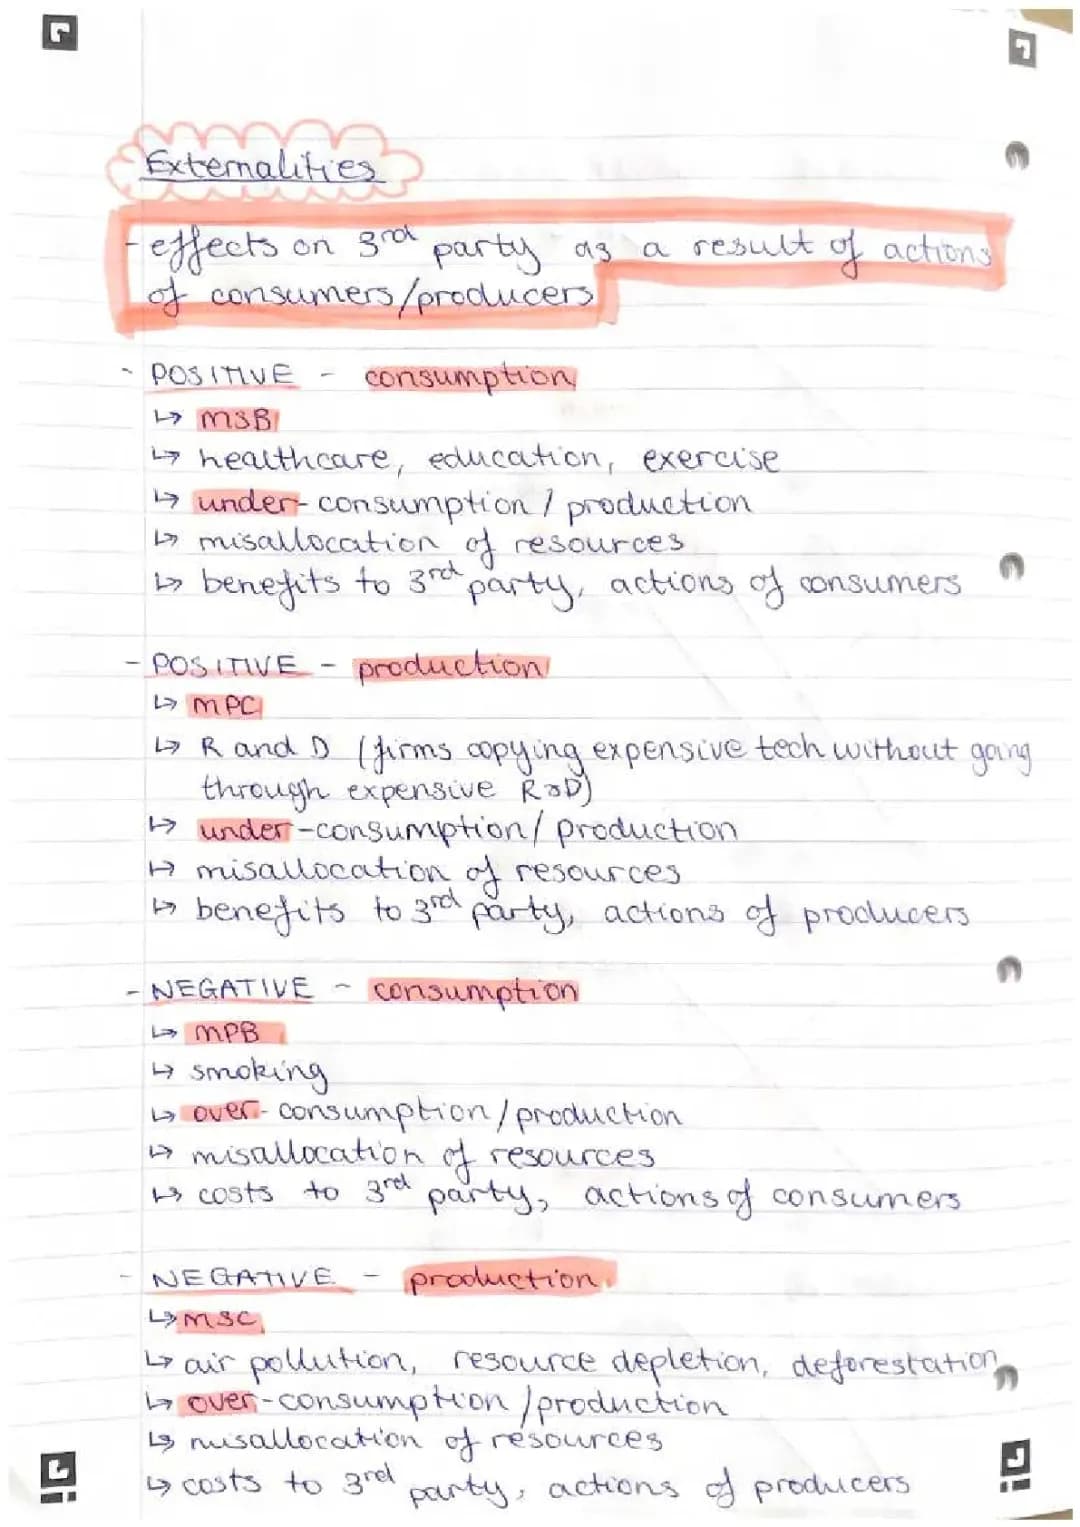 Externalities
- effects on 3rd party as a result of actions
of consumers/producers
- POSITIVE - consumption
↳ MSB
↳ healthcare, education, exercise
↳ under-consumption / production
↳ misallocation of resources
↳ benefits to 3rd party, actions of consumers
- POSITIVE - production
↳ MPC
↳ R and D (firms copying expensive tech without going
through expensive R&D)
↳ under-consumption/production
↳ misallocation of resources
↳ benefits to 3rd party, actions of producers
- NEGATIVE - consumption
↳ MPB
↳ smoking
↳ over-consumption/production
↳ misallocation of resources
↳ costs to 3rd party, actions of consumers
- NEGATIVE - production
↳ MSC
↳ air pollution, resource depletion, deforestation
↳ over-consumption/production
↳ misallocation of resources
↳ costs to 3rd party, actions of producers